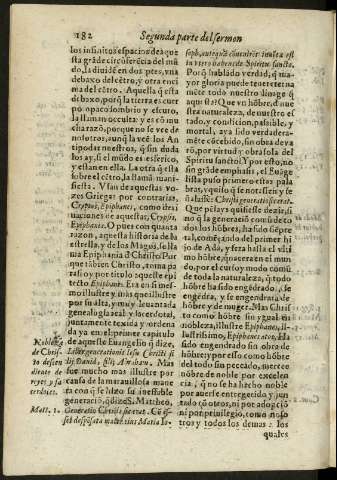 182
Segunda parte del sermon
los infinitos espacios de aque
sta grãde circũferẽcia del mũ
do, la diuidẽ en dos ptes, vna
debaxo del cẽtro, y otra enci
ma del cẽtro. Aquella q̃ esta
debaxo, porq̃ la tierra es cuer
po opaco, condenso y escuro,
la llaman occulta: y es cõ mu
cha razõ, porque no se vee de
nosotros, aunq̃ la veẽ los An
tipodas nuestros, q̃ sin duda
los ay, si el mũdo es esferico,
y estan en ella. La otra q̃ esta
sobre el cẽtro, la llamã mani-
fiesta. Vsan de aquestas vo-
zes Griegas por contrarias,
Cryptos, Epiphanes, como deri
uaciones de aquestas, Crypsis,
Epiphania. O pues con quanta
razon, aquesta historia de la
estrella, y de los Magos, se lla
ma Epiphania de Christo! Por
que tãbien Christo, toma pa
ra si o y por titulo aqueste epi
tecto Epiphanes. Era en si mes-
mo illustre, y mas que illustre
por su alta, y muy leuantada
genealogia real y sacerdotal,
juntamente texida y ordena-
da ya en el primer capitulo
de aqueste Euangelio q̃ dize,
Liber generationis Iesu Christi fi
lij Dauid, filij Abraham. Mas
fue mucho mas illustre por
causa de la marauillosa mane
ra con q̃ se hizo su ineffable
generaciõ, q̃ dize S. Mattheo,
Generatio Christi sic erat. Cũ es-
set desponsata mater eius Maria Io-
Nobleza
de Chris-
to descen
diente de
reyes y sa
cerdotes.
Matt. 1.
seph, antequã conuenirent inuẽta est
in vtero habens de Spiritu sancto.
Porq̃ hablãdo verdad, q̃ ma
yor gloria puede tener eterna
mẽte todo nuestro linage q̃
aquesta? Que vn hõbre, d nue
stra naturaleza, de nuestro es
tado, y condicion, passible, y
mortal, aya sido verdadera-
mẽte cõcebido, sin obra de va
rõ, por virtud y obra sola del
Spiritu sancto! Y por esto, no
sin grãde emphasis, el Euãge
lista puso primero estas pala
bras,
Christi generatio sic erat.
Que
no q̃ la generaciõ comũ de to
dos los hõbres, ha sido siẽpre
tal, comẽçando del primer hi
jo de Adã, y sera hasta el vlti
mo hõbre, que aurera en el mun
do, por el curso y modo comũ
de toda la naturaleza, q̃ todo
hõbre ha sido engẽdrado, o se
engẽdra, y se engendrara de
hõbre y de muger. Mas Chris
to como hõbre sin ygual en
nobleza, illustre Epiphanes, il-
lustrissimo, Epiphanestatos, Ha
sido engendrado sin obra de
hõbre: y por esso como hõbre
del todo sin peccado, mereci
nõbre de noble por excelen
cia, q̃ no se ha hecho noble
por auerse entregerido, y jun
tado cõ otros, ni por adopciõ
ni por priuilegio, como noso
tros y todos los demas: los
quales